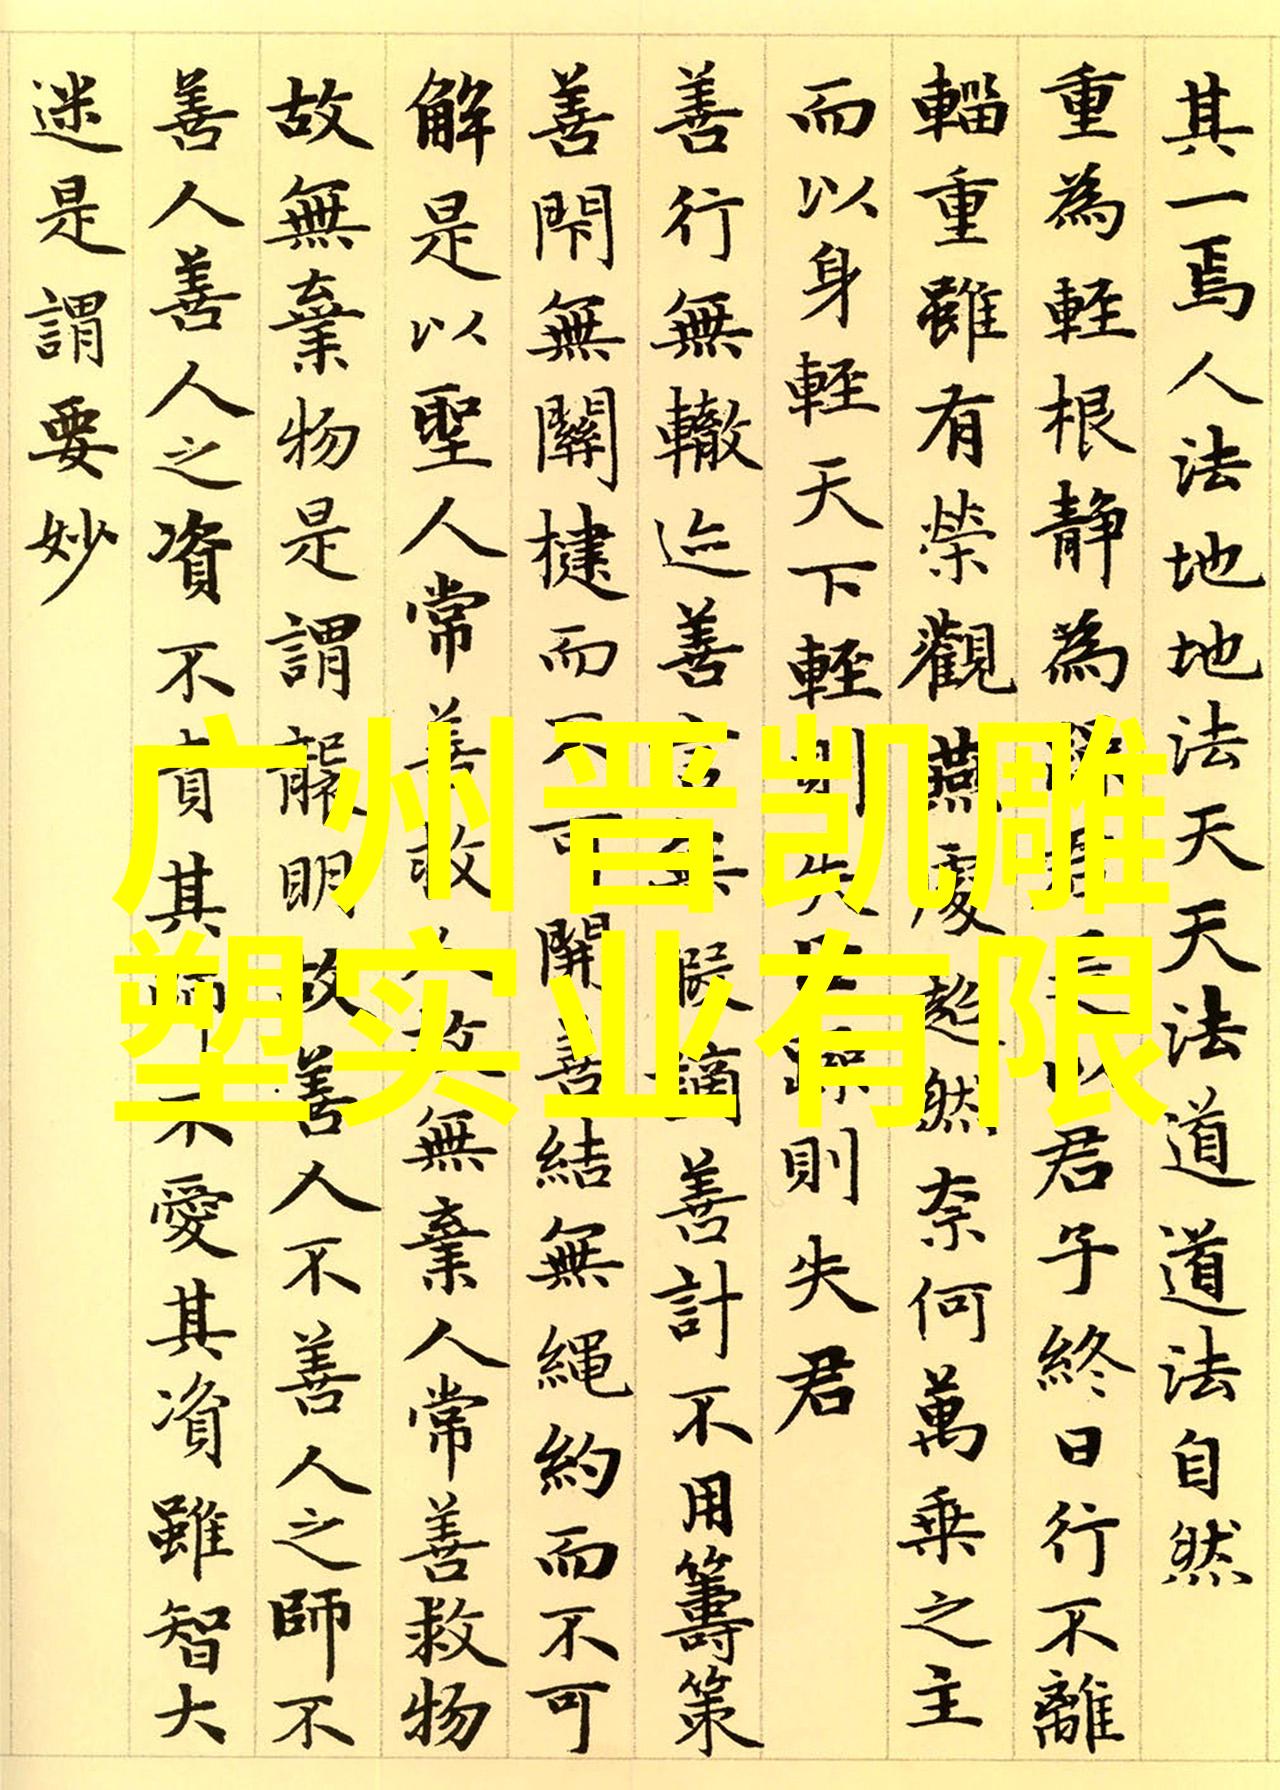 其一焉人法地地法天天法道道法自然
重為輕根静為以君子終日行不離
輜重雖有榮觀燕處超然奈何萬乗之主
而以身輕天下輕則失則失君
善行無轍迹善言無瑕謫善計不用籌策
善閇無關楗而不可開善結無繩約而不可
解是以聖人常善救人故無棄人常善救物
故無棄物是謂襲明故善人不善人之師不
善人善人之資不貴其師不愛其資雖智大
迷是謂要妙
广州晋凯雕
塑实业有限